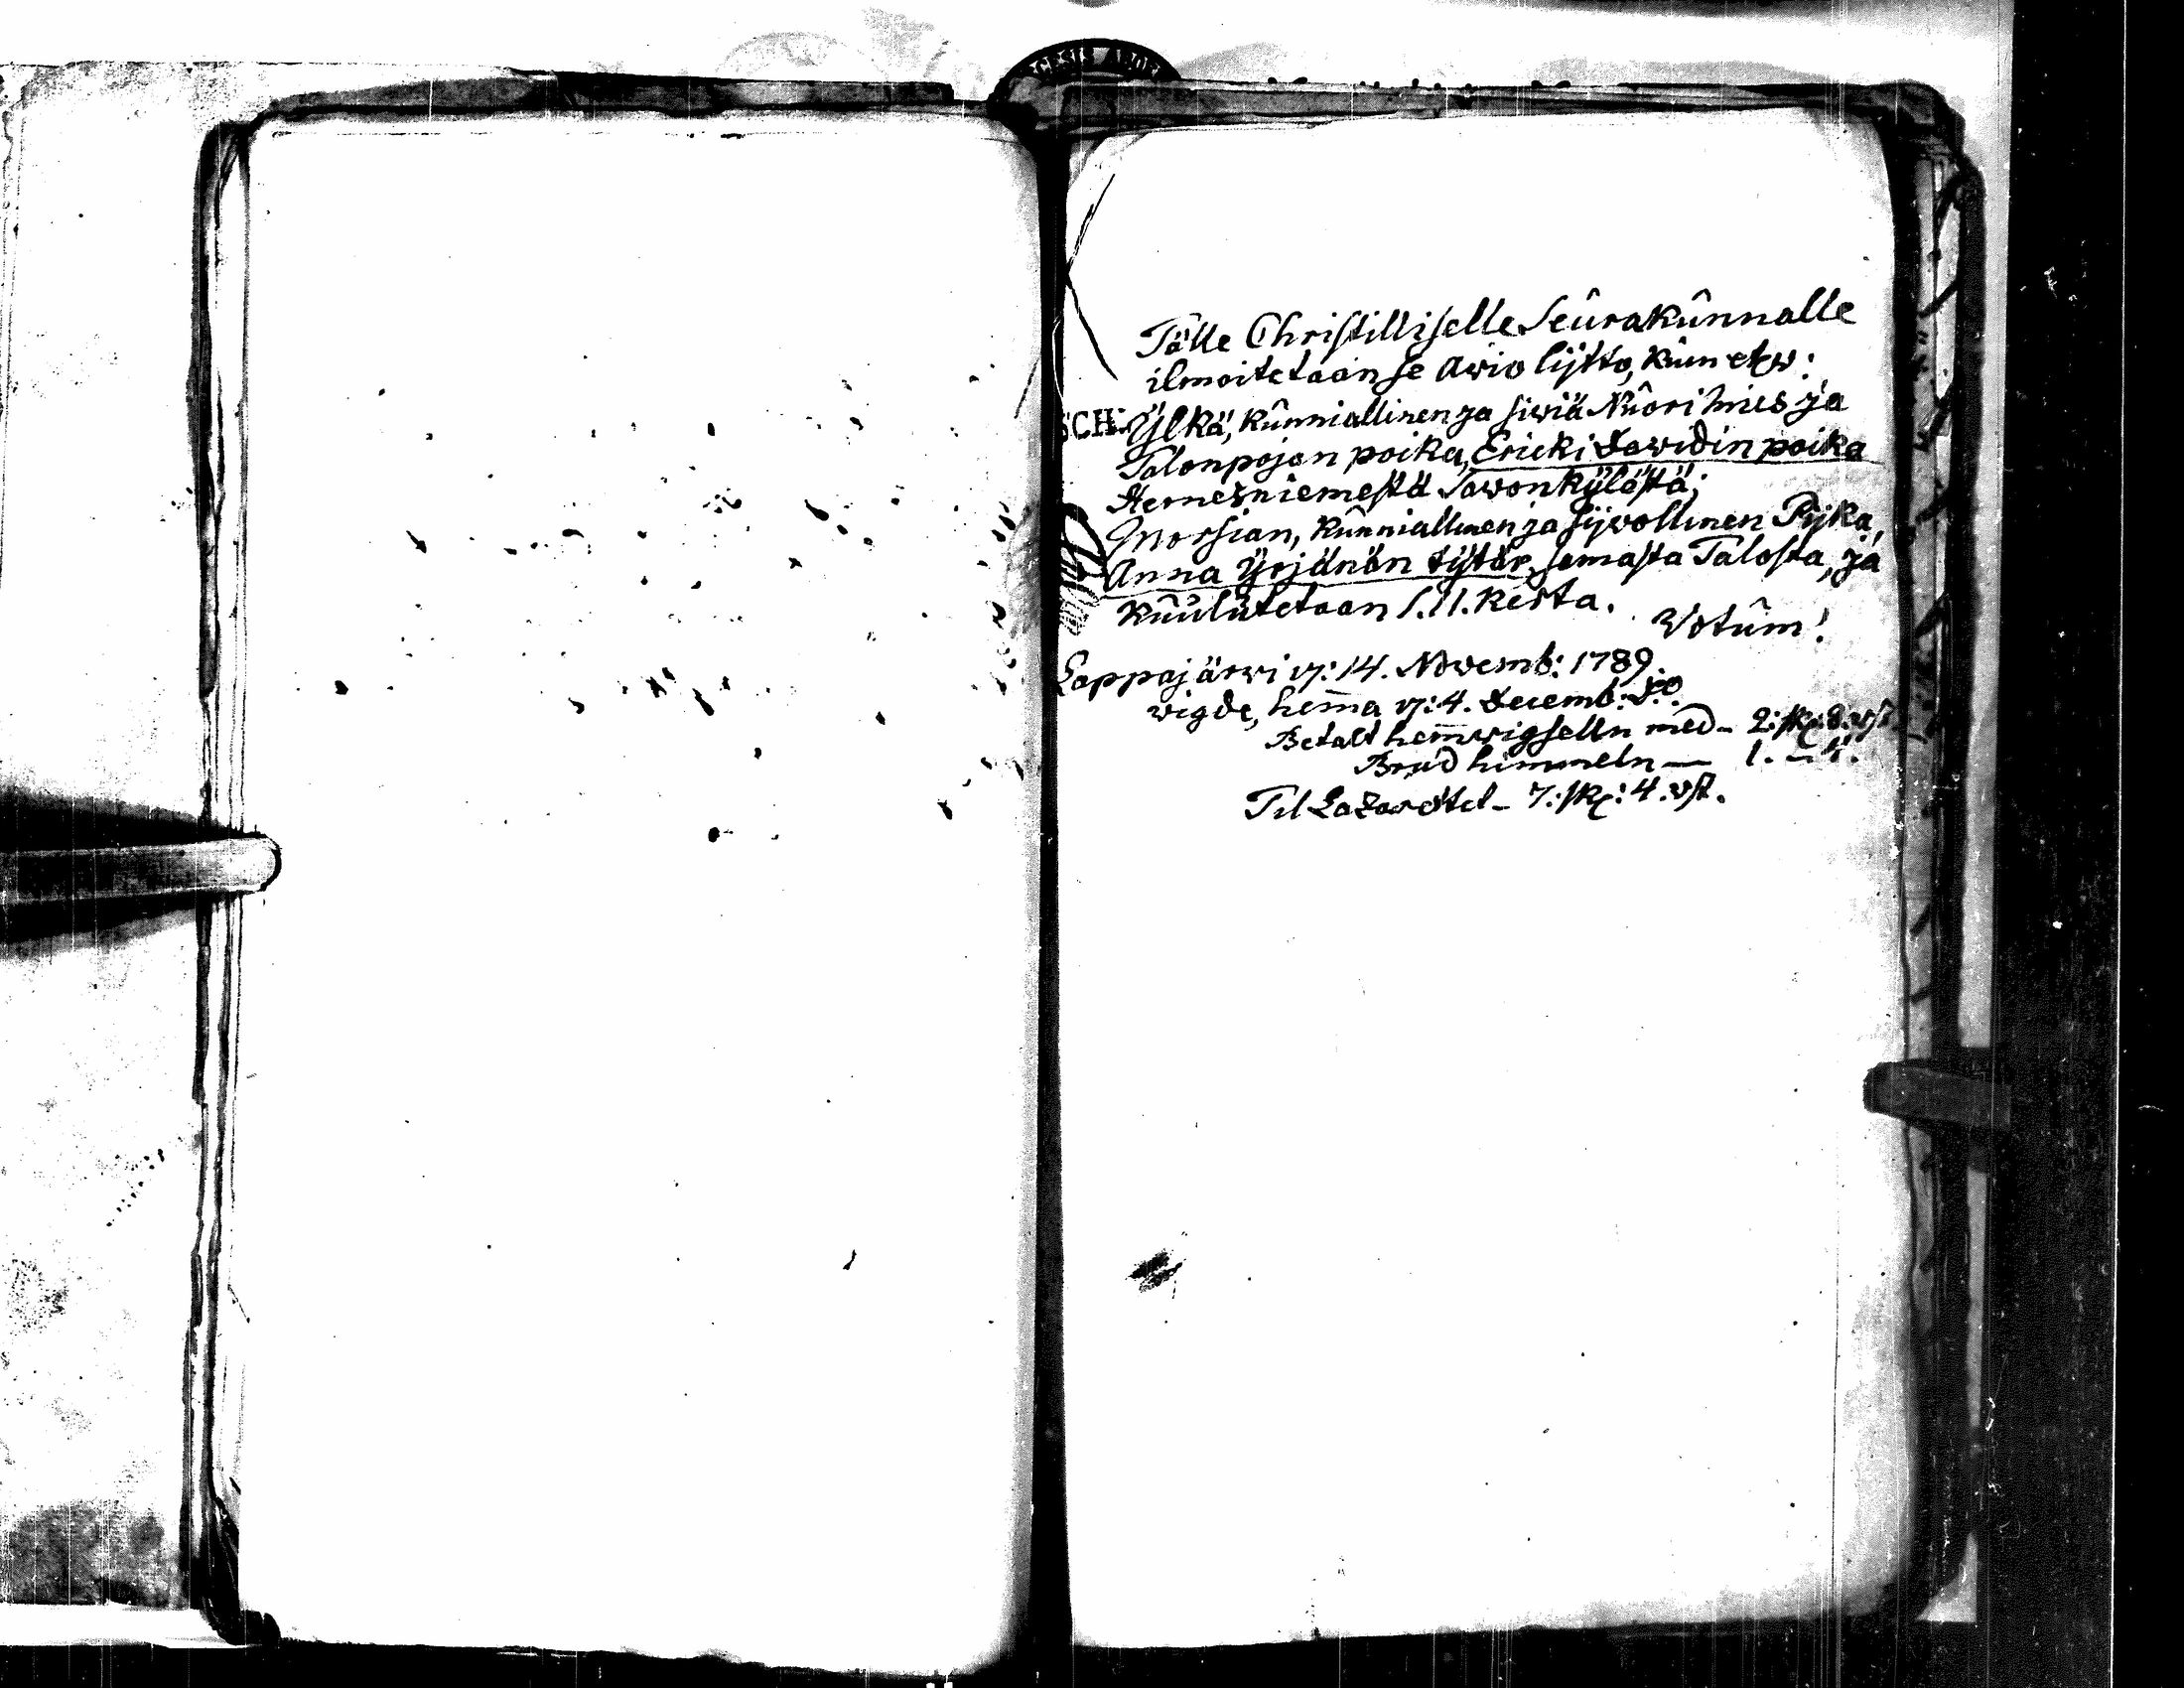 CESIS ABOE
Tälle Christilliselle Seûrakûnnalle
ilmoitetaan se Awio lijtto, kûin etzs:
SCH.
Ÿlkä, kûnniallinen ja siwiä Nûori mies ja
Talonpojan poika, Ericki Dawidin poika
Hernesniemestä Sawonkÿlästä;
Morsian, kûnniallinen ja sijwollinen Pijka,
Anna Yrjänän tÿtär, samasta Talosta, ja
kûûlûtetaan 1. II. kerta.
Votûm!
Lappajärwi d: 14. Novemb: 1789.
wigde, hem̄a d: 4. Decemb: do.
Betalt hem̄wigselln med - 2: sk: 8. rst.
Brûd himmeln — 1. - 4.
Til Lazarettet - 7: sk: 4. rst.